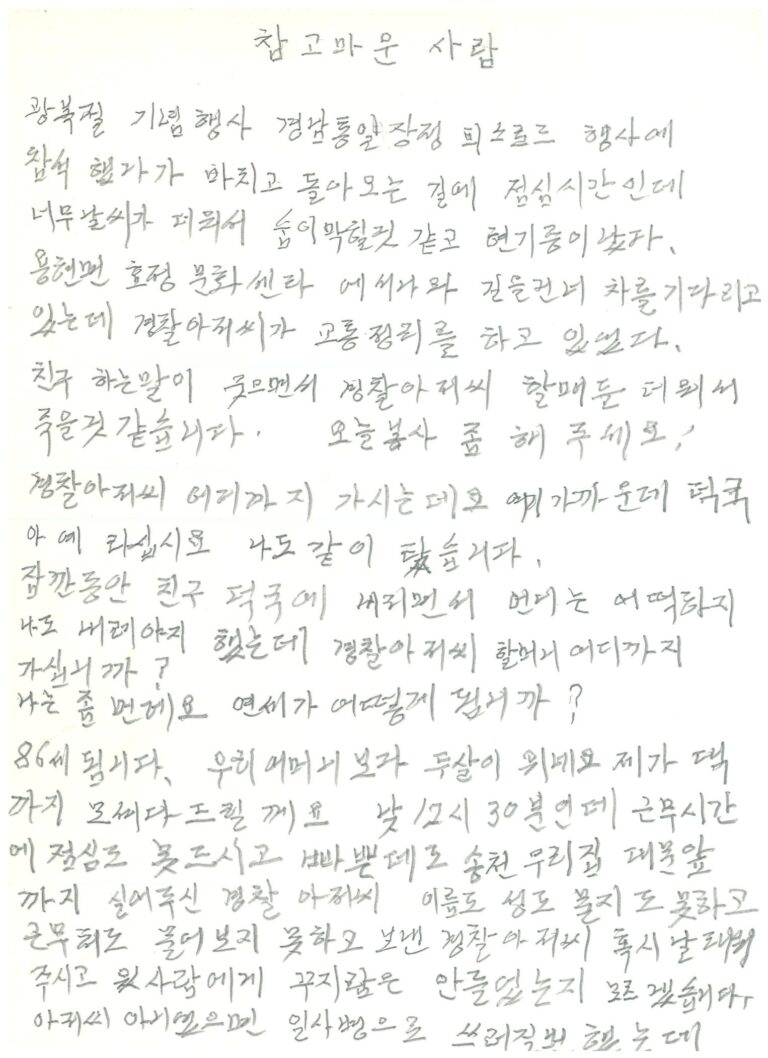 참 고마운 사람
광복절 기념행사 경남통일장정 퍼스로드 행사에
참석 했다가 마치고 돌아오는 길에 점심시간인데
너무날씨가 더워서 숨이막힐것 같고 현기증이 났다.
용현면 효정 문화센타 에서나와 길을건너 차를기다리고
있는데 경찰아저씨가 교통정리를 하고 있었다.
친구 하는말이 웃으면서 경찰아저씨 할매들 더워서
죽을것 같습니다. 오늘봉사 좀 해 주세요!
경찰아저씨 어디까지 가시는데요 여기 가까운데 덕곡
아 예 타십시요 나도같이 탔습니다.
잠깐동안 친구 덕곡에 내리면서 언니는 어떡하지
나도 내려야지 했는데 경찰아저씨 할머니 어디까지
가십니까?
나는 좀 먼데요 연세가 어떻게 됩니까?
86세 됩니다. 우리어머니 보다 두살이 위네요 제가 댁
까지 모셔다드릴 께요 낮 12시 30분인데 근무시간
에 점심도 못드시고 바쁜데도 송천 우리집 대문앞
까지 실어주신 경찰 아저씨 이름도 성도 묻지도 못하고
근무처도 물어보지 못하고 보낸 경찰아저씨 혹시 날 태워
주시고 윗사람에게 꾸지람은 안들었는지 모르겠습니다.
아저씨 아니였으면 일사병으로 쓰러질번 했는데